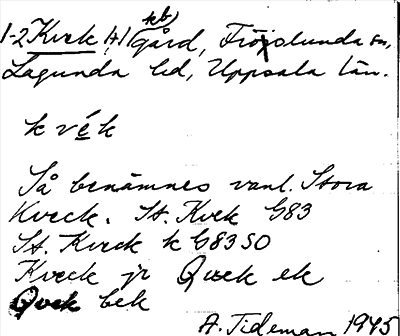 kb)
1-2 Kvek A) gård, Fröslunda sn,
Lagunda hd, Uppsala län.
k v é k
Så benämnes vanl. Stora
Kveck. St. Kvek G83
St. Kveck k G83SO
Kveck jr Quek ek
Quek bek
A. Tideman 1945